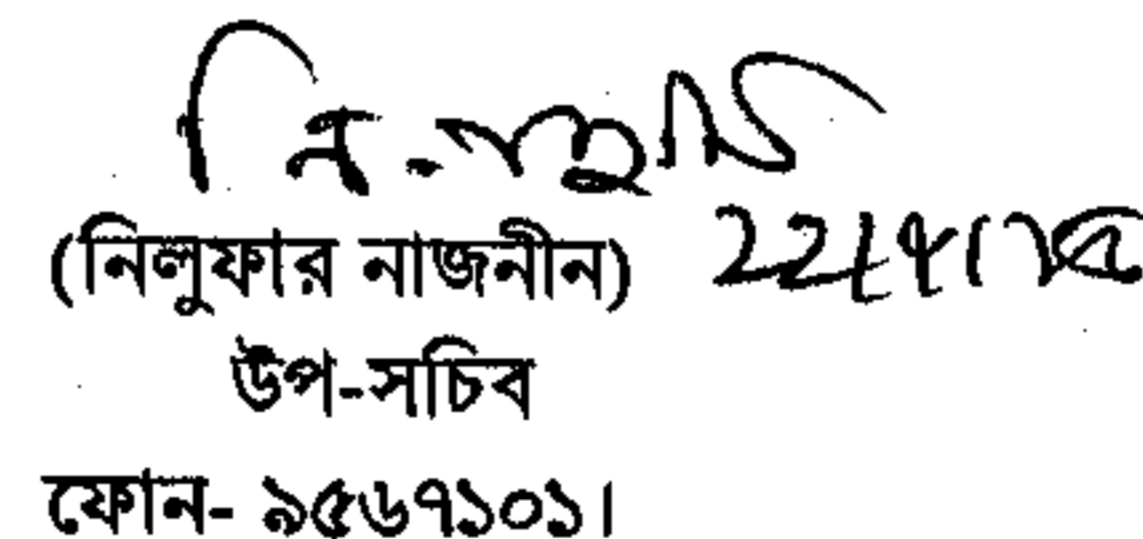 (নিলুফার নাজনীন)
উপ-সচিব
ফোন- ৯৫৬৭১০১।